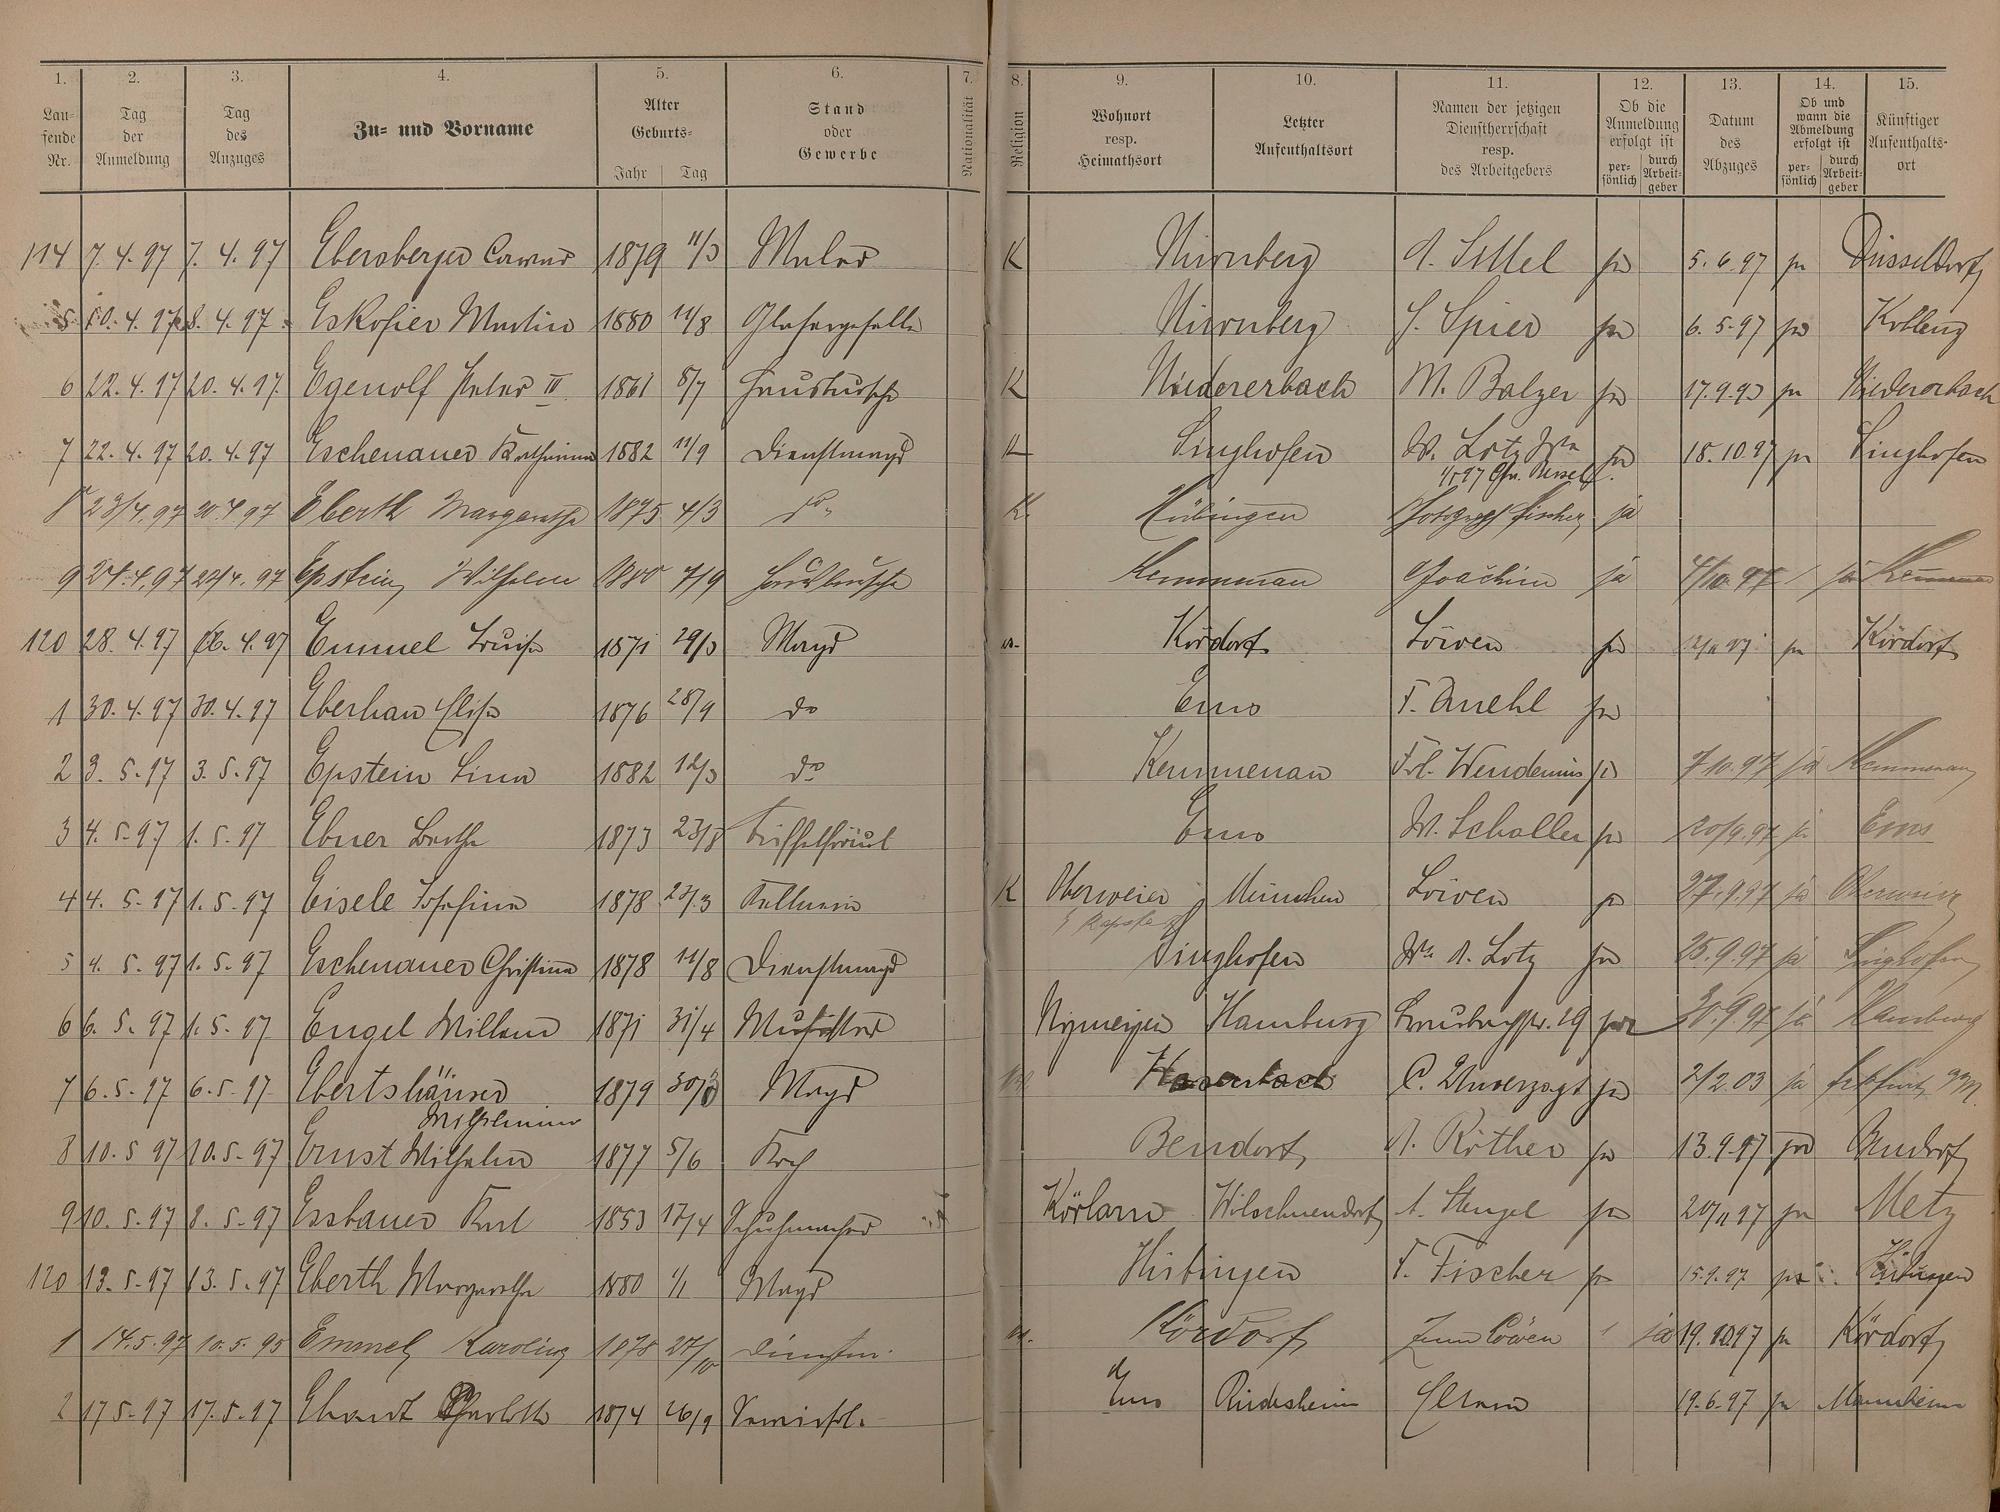 1. 2. 3. 4. 5. 6. 7. 8. 9. 10. 11. 12. 13. 14. 15.
Lau-
fende
Nr.
Tag
der
Anmeldung
Tag
des
Anzuges
Zu- und Vorname
Alter
Geburts-
Jahr Tag
Stand
oder
Gewerbe
Nationalität
Religion
Wohnort
resp.
Heimathsort
Letzter
Aufenthaltsort
Namen der jetzigen
Dienstherrschaft
resp.
des Arbeitgebers
Ob die
Anmeldung
erfolgt ist
per-
sönlich
durch
Arbeit-
geber
Datum
des
Abzuges
Ob und
wann die
Abmeldung
erfolgt ist
per-
sönlich
durch
Arbeit-
geber
Künftiger
Aufenthalts-
ort
114 7. 4. 97 7. 4. 97 Ebersberger 1879 11/3 Maler K Nürnberg A. ja 5. 6. 97 ja Düsseldorf
5 10. 4. 97 8. 4. 97 Eskofier Martin 1880 11/8 Glasergeselle Nürnberg J. Spier ja 6. 5. 97 ja Koblenz
6 22. 4. 97 20. 4. 97 Egenolf Peter III 1861 8/7 Hausbursche K Niedererbach M. Balzer ja 17. 9. 97 ja Niedererbach
7 22. 4. 97 20. 4. 97 Eschenauer Katharina 1882 11/9 Dienstmagd Singhofen W. Lotz Wwe ja 18. 10. 97 ja Singhofen
8 23/4. 97 20. 4. 97 Eberth Margarethe 1875 4/3 do K. Hübingen Fotograf Fischer ja
9 24. 4. 97 22/4. 97 Epstein Wilhelm 1880 7/9 Hausbursche Kemmenau Joachim ja 4/10. 97 ja Kemmenau
120 28. 4. 97 26. 4. 97 Emmel Louise 1871 29/3 Magd Kördorf Löwen ja ja Kördorf
1 30. 4. 97 30. 4. 97 Eberhan Elise 1876 28/9 do Ems F. ja
2 3. 5. 97 3. 5. 97 Epstein Lina 1882 12/3 do Kemmenau Frl. Wendenius ja 7 10. 97 ja Kemmenau
3 4. 5. 97 1. 5. 97 Ebner Bertha 1873 23/8 Büffetfräul Ems W. Schaller ja 20/9. 97 ja Ems
4 4. 5. 97 1. 5. 97 Eisele Josefine 1878 23/3 Kellnerin K Oberweier München Löwen ja 27. 9. 97 ja Oberweier
5 4. 5. 97 1. 5. 97 Eschenauer Christina 1878 11/8 Dienstmagd Singhofen Wwe A. Lotz ja 25. 9. 97 ja Singhofen
6 6. 5. 97 1. 5. 97 Engel Willem 1871 31/4 Nymeijen Hamburg 30. 9. 97 ja Hamburg
7 6. 5. 97 6. 5. 97 Ebertshäuser 1879 Magd Hasenbach C. Unverzagt ja 2/2. 03 ja
Wilhelmine
8 10. 5 97 10. 5. 97 Ernst Wilhelm 1877 5/6 Koch Bendorf A. Röther ja 13. 9. 97 ja Bendorf
9 10. 5. 97 8. 5. 97 Essbauer Karl 1853 17/4 Schuhmacher Wilschnendorf A. Stengel ja 20/11 97 ja Metz
120 13. 5. 97 13. 5. 97 Eberth Margarethe 1880 1/1 Magd Hübingen F. Fischer ja 15. 9. 97 ja Hübingen
1 14. 5. 97 10. 5. 95 Emmel Karoline 1878 27/10 Dienstm. Kördorf Zum Löwen ja 19. 10 97 ja Kördorf
2 17 5. 97 17. 5. 97 1874 26/9 Ems Rüdesheim Eltern 19. 6. 97 ja Mannheim